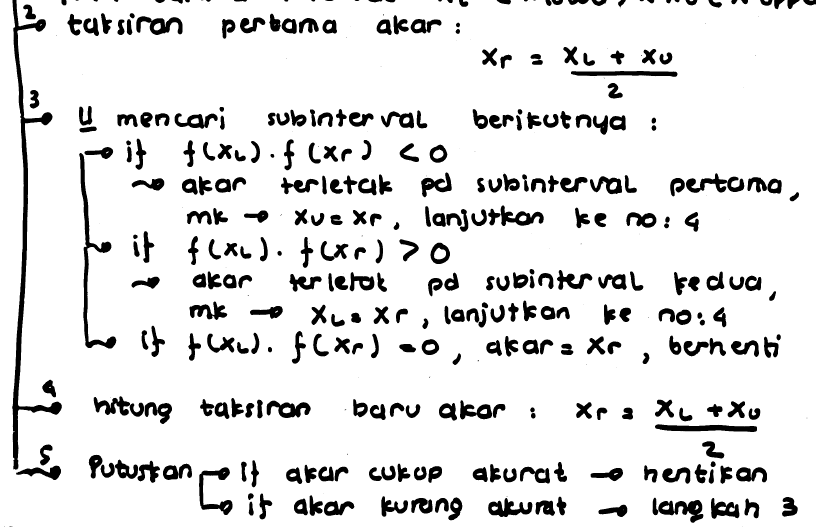 2 taksiran pertama akar :
xr = xL + xU
2
3 U mencari subinterval berikutnya :
if f(xL) . f(xr) < 0
~> akar terletak pd subinterval pertama,
mk → xU = xr, lanjutkan ke no: 4
if f(xL) . f(xr) > 0
~> akar terletak pd subinterval kedua,
mk → xL = xr, lanjutkan ke no: 4
if f(xL) . f(xr) = 0, akar = xr, berhenti
4 hitung taksiran baru akar : xr = xL + xU
2
5 Putuskan → if akar cukup akurat → hentikan
→ if akar kurang akurat → langkah 3